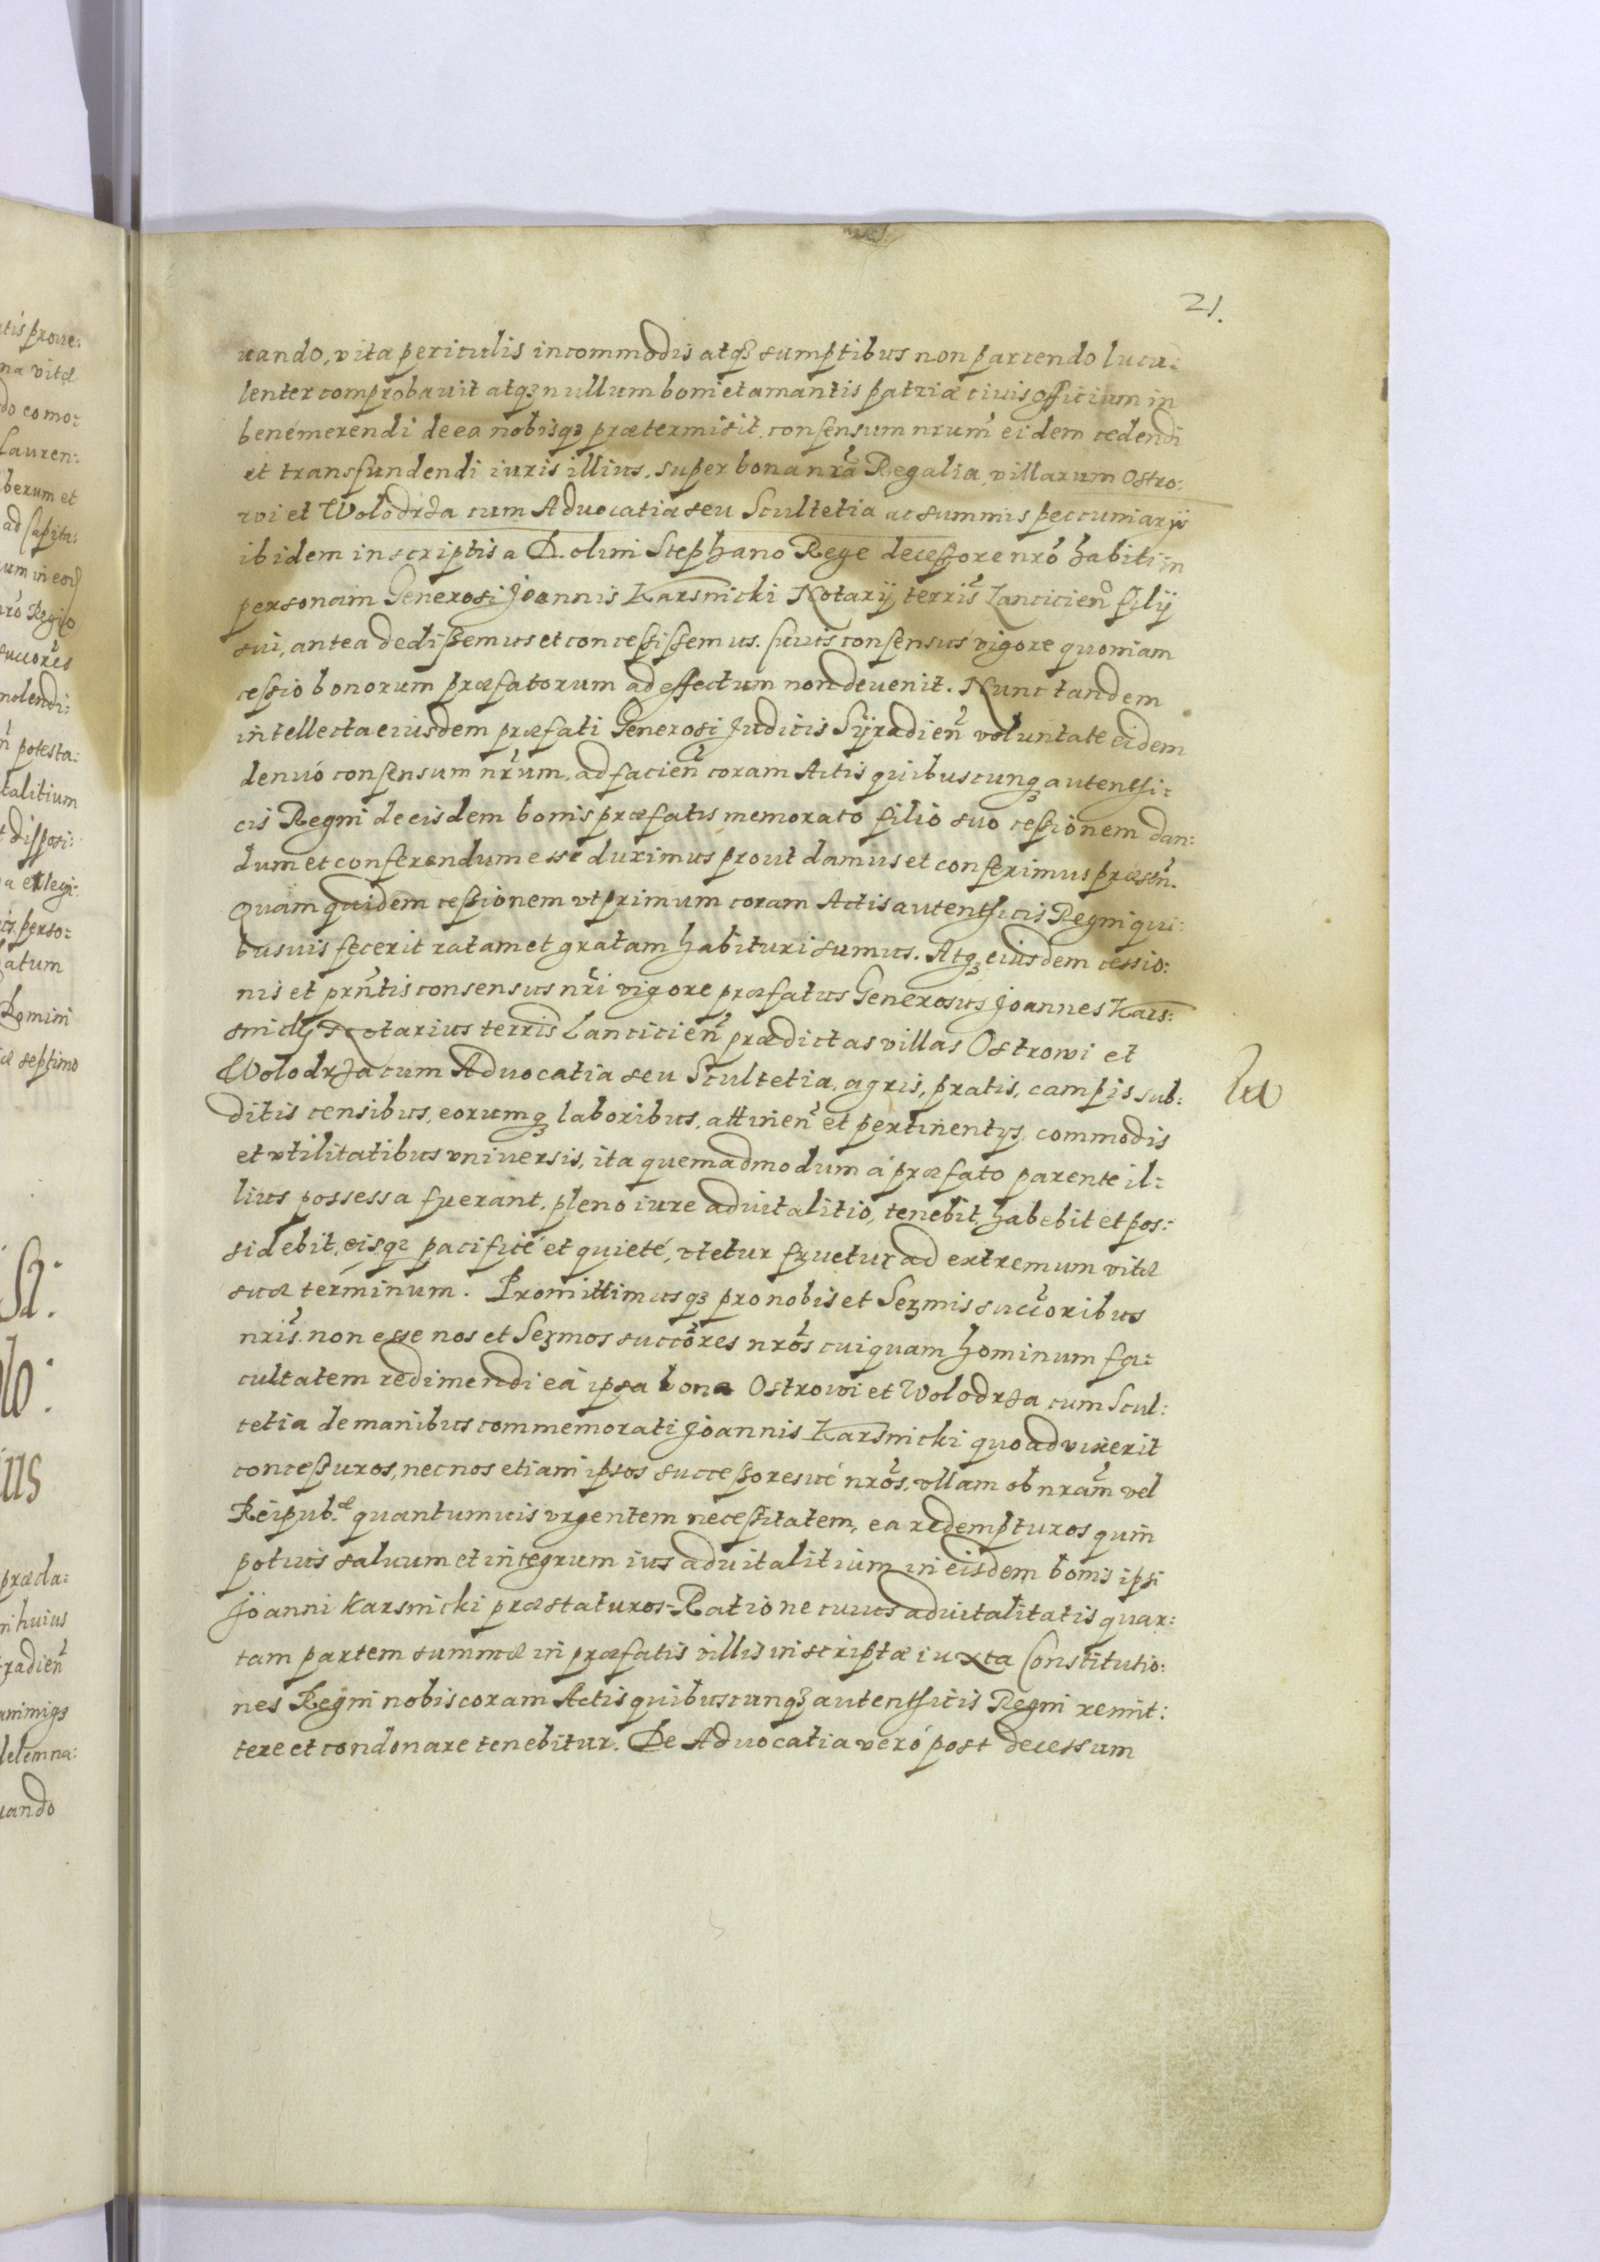 21.
uando, vita periculis incommodis atqꝫ sumptibus non parcendo lucu:
lenter comprobauit atqꝫ nullum boni et amantis patriæ ciuis officium in
benémerendi de ea nobisqꝫ prætermisit. consensum nrum̃ eidem cedendi
et transfundendi iuris illius, super bona nrã Regalia villarum Ostro:
wi et Wolodrza cum Aduocatia seu Scultetia ac summis peccuniarÿs
ibidem inscriptis a D. olim Stephano Rege decessore nrõ habiti in
personam Generosi Joannis Karsnicki Notarÿ terris Lancicieñ filÿ
sui, antea dedissemus et concessissemus. cuius consensus vigore quoniam
cessio bonorum præfatorum ad effectum non deuenit. Nunc tandem
intellecta eiusdem præfati Generosi Judicis Sÿradieñ voluntate eidem
denuó consensum nrũm, ad facieñ coram Actis quibuscunqꝫ autenthi:
cis Regni de eisdem bonis præfatis memorato filio suo cessionem dan:
dum et conferendum esse duximus prout damus et conferimus præseñ.
Quam quidem cessionem vt primum coram Actis autenthicis Regni qui:
busuis fecerit ratam et gratam habituri sumus. Atqꝫ eiusdem cessio:
nis et prñtis consensus nrĩ vigore præfatus Generosus Joannes Kars:
snickj Notarius terris Lancicieñ prædictas villas Ostrowi et
Wolodrza cum Aduocatia seu Scultetia, agris, pratis, campis sub:
ditis censibus, eorumqꝫ laboribus, attineñ et pertinentÿs, commodis
et vtilitatibus vniuersis, ita quemadmodum á præfato parente il:
lius possessa fuerant, pleno iure aduitalitio, tenebit, habebit et pos:
sidebit, eisqꝫ pacificé et quieté, vtetur fruetur ad extremum vitæ
suæ terminum. Promittimusqꝫ pro nobis et Serꝫmis succõribus
nrĩs. non esse nos et Serꝫmos succõres nrõs cuiquam hominum fa:
cultatem redimendi ea ipsa bona Ostrowi et Wolodrza cum Scul:
tetia de manibus commemorati Joannis Karsnicki quoad vixerit
concessuros, nec nos etiam ipsos successoresué nrõs, vllam ob nrãm vel
Reipub.æ quantumuis vrgentem necessitatem, ea redempturos quin
potius saluum et integrum ius aduitalitium in eisdem bonis ipsi
Joanni Karsnicki præstaturos. Ratione cuius aduitalitatis quar:
tam partem summæ in præfatis villis inscriptæ iuxta Constitutio:
nes Regni nobis coram Actis quibuscunqꝫ autenthicis Regni remit:
tere et condonare tenebitur. De Aduocatia veró post decessum